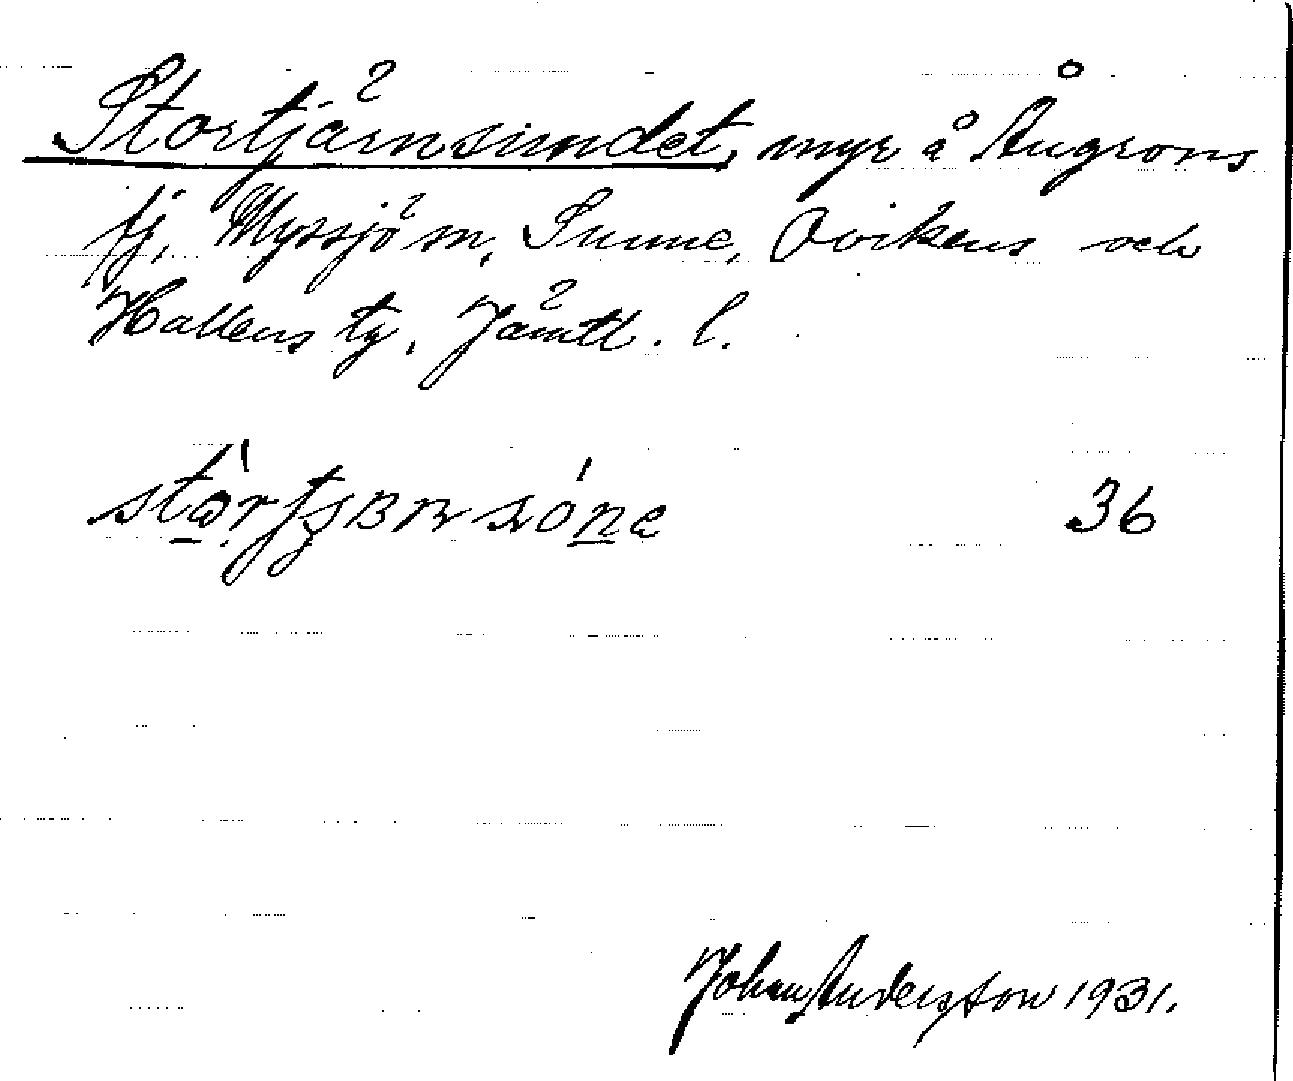 Stortjärnsundet, myr å Ångrons
fj, Myssjö sn, Sunne, Ovikens och
Hallens tg. Jämtl. l.
36
Johan Andersson 1931.